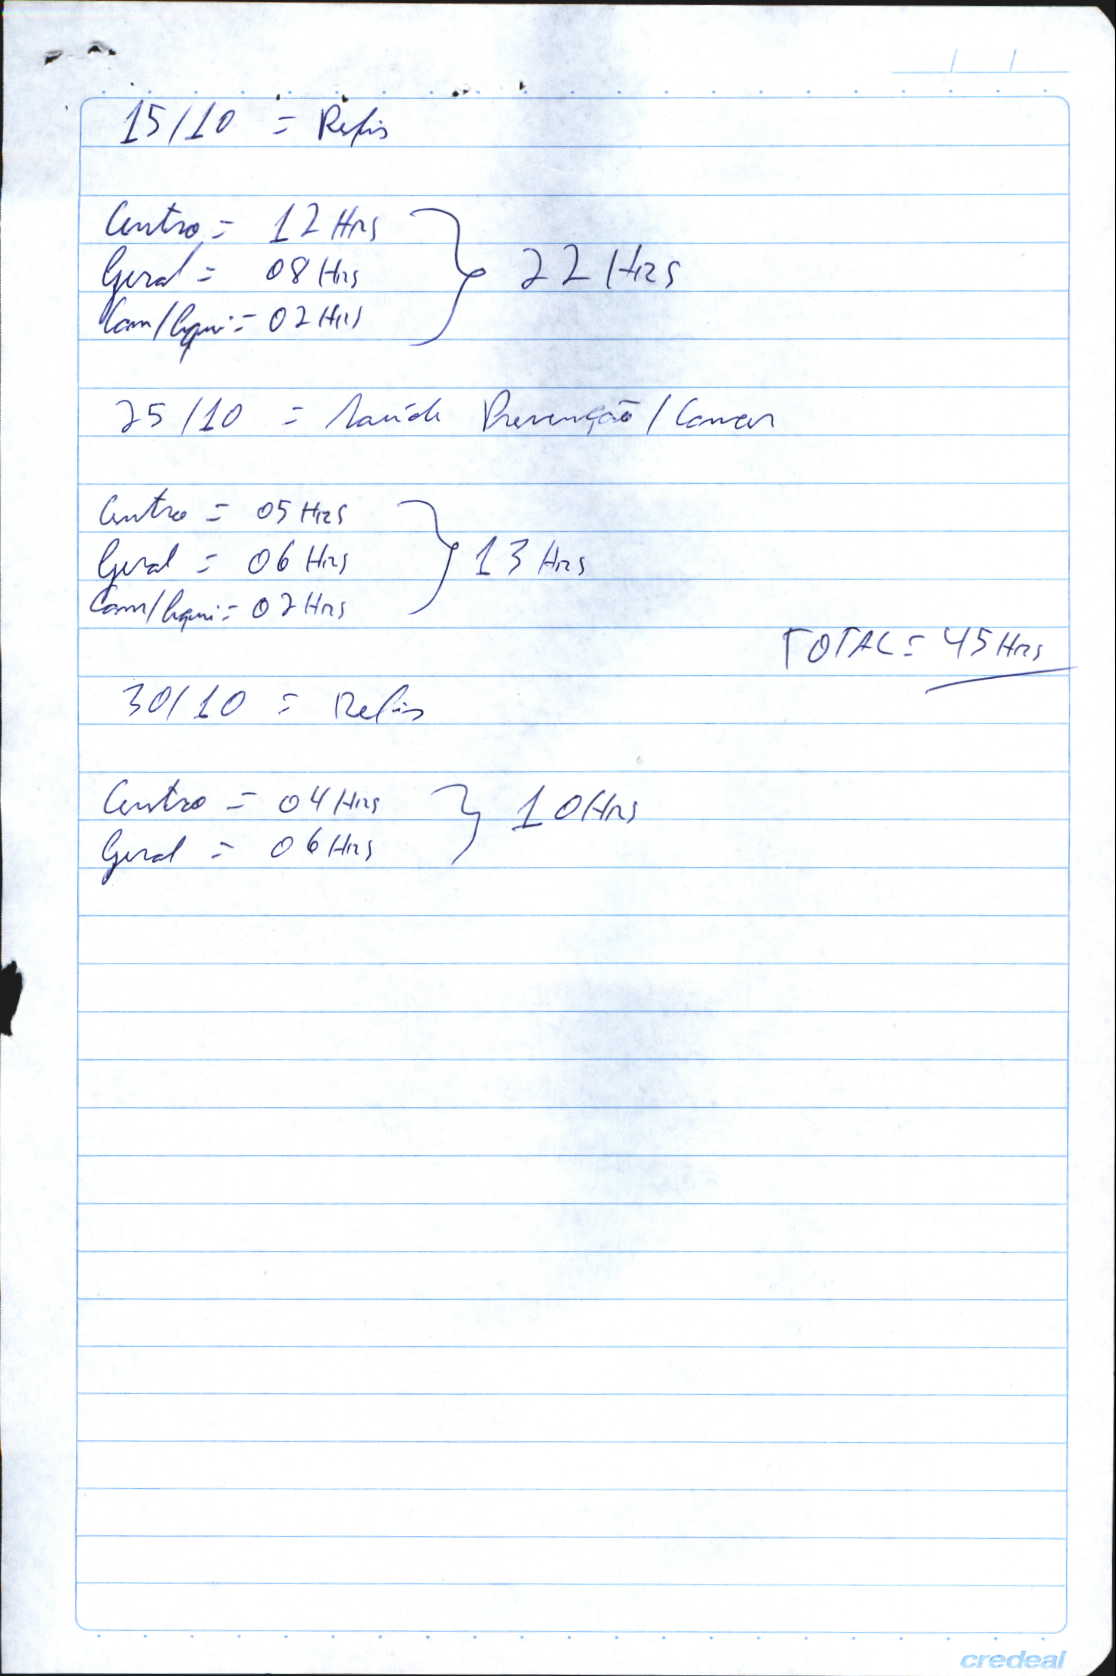 15/10 = Refis
Centro = 12 Hrs
Geral = 08 Hrs
22 Hrs
Cam/Iqui = 02 Hrs
25/10 = Saúde Prevenção/Cancer
Centro = 05 Hrs
Geral = 06 Hrs
13 Hrs
Cam/Iqui = 02 Hrs
TOTAL = 45 Hrs
30/10 = Refis
Centro = 04 Hrs
10 Hrs
Geral = 06 Hrs
credeal